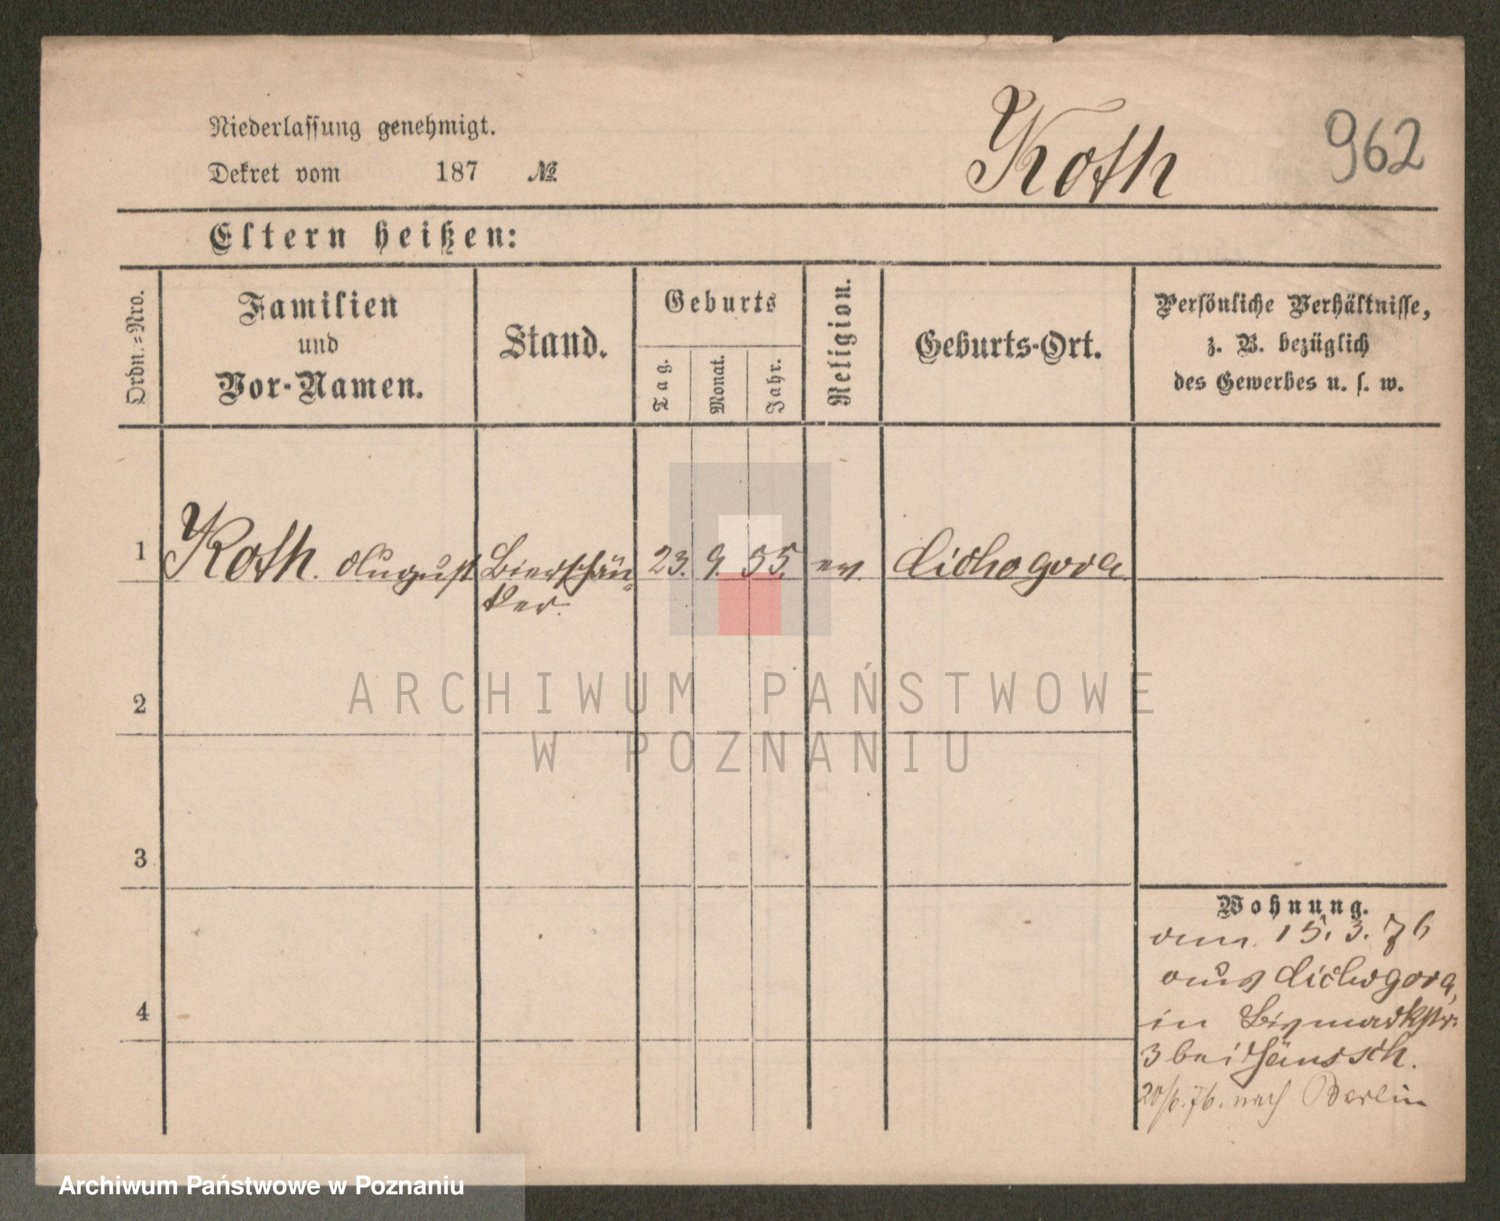 Niederlassung genehmigt.
Dekret vom 187 №
Roth
962
Eltern heißen:
Ordn.=Nro.
Familien
und
Vor-Namen.
Stand.
Geburts
Tag.
Monat.
Jahr.
Religion.
Geburts-Ort.
Persönliche Verhältnisse,
z. B. bezüglich
des Gewerbes u. s. w.
1
Roth. August
Bierschän
ker.
23. 9. 55.
ev.
Cichogora
2
3
4
Wohnung.
vom 15. 3. 76
aus Cichogora,
in Bismarkstr.
3 bei
20/6. 76. nach Berlin
ARCHIWUM PAŃSTWOWE
W POZNANIU
Archiwum Państwowe w Poznaniu